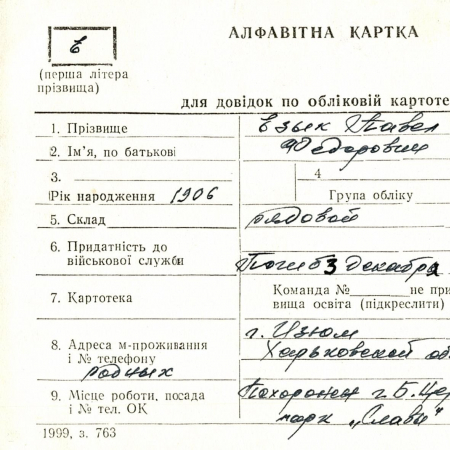 АЛФАВІТНА КАРТКА
Е
(перша літера
прізвища)
для довідок по обліковій картоте
1. Прізвище Езык Павел
2. Ім'я, по батькові Федорович
3. 4
Рік народження 1906 Група обліку
5. Склад рядовой
6. Придатність до
військової служби Погиб 3 декабря
Команда № не при
7. Картотека вища освіта (підкреслити)
8. Адреса м-проживання г. Изюм
і № телефону Харьковской об
родных
9. Місце роботи, посада Похоронен г. Б. Цер
і № тел. ОК парк „Славы"
1999, з. 763